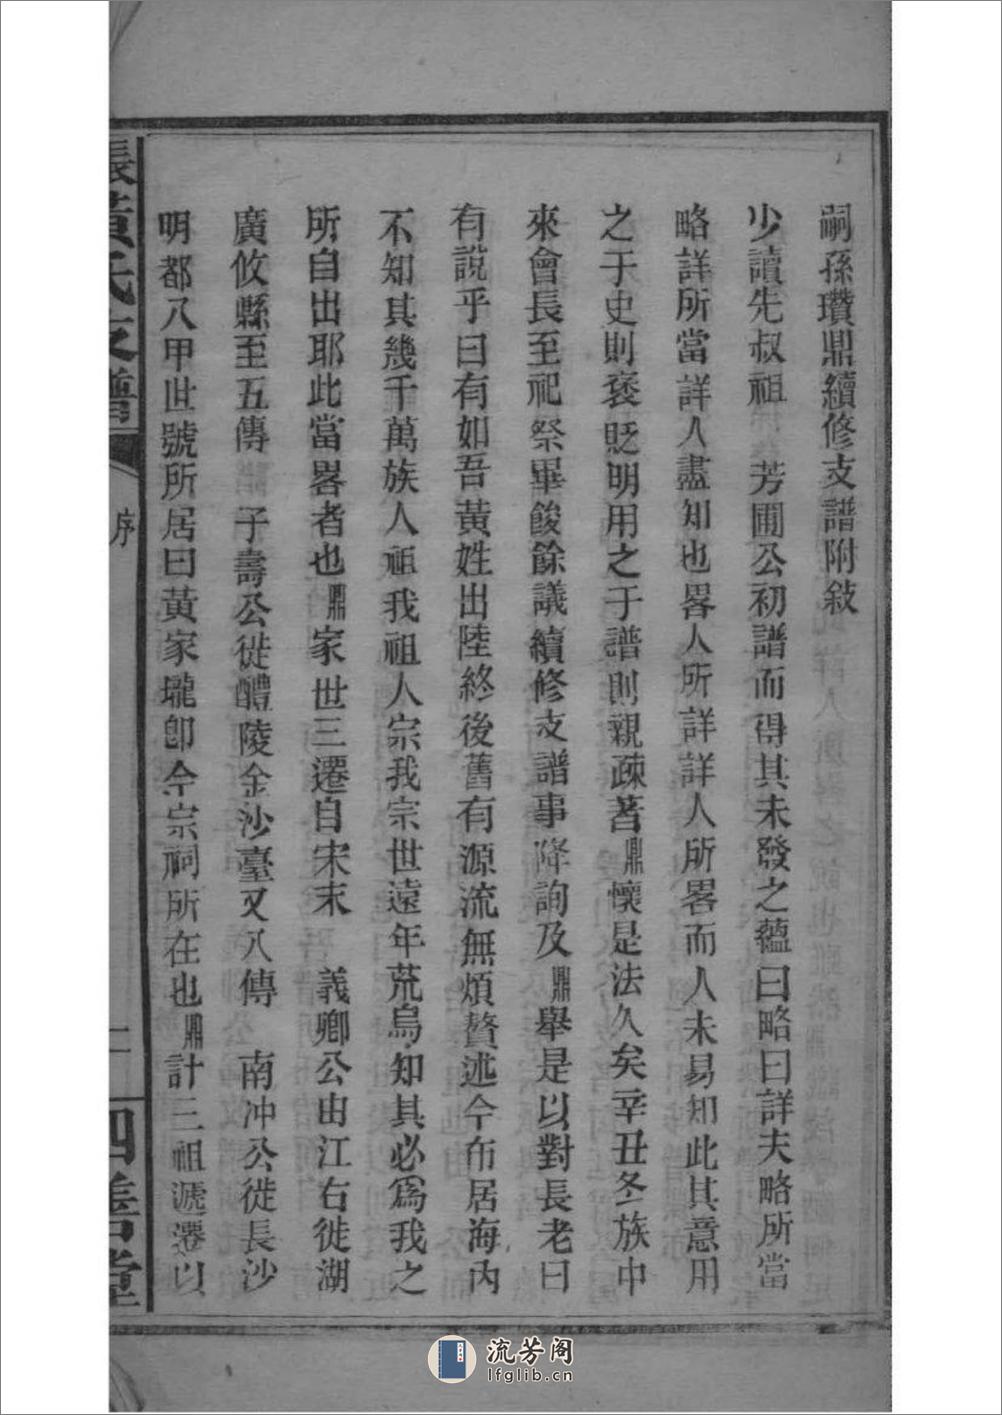 嗣孫瓚鼎續修支譜附敍
少讀先叔祖　芳圃公初譜而得其未發之蘊曰略曰詳夫略所當
略詳所當詳人盡知也畧人所詳詳人所畧而人未易知此其意用
之于史則褒貶明用之于譜則親疎著鼎懷是法久矣辛丑冬族中
來會長至祀祭畢餕餘議續修支譜事降詢及鼎舉是以對長老曰
有說乎曰有如吾黃姓出陸終後舊有源流無煩贅述今布居海內
不知其幾千萬族人祖我祖人宗我宗世遠年荒烏知其必為我之
所自出耶此當畧者也鼎家世三遷自宋末　義卿公由江右徙湖
廣攸縣至五傳　子壽公徙醴陵金沙臺又八傳　南冲公徙長沙
明都八甲世號所居曰黃家壠卽今宗祠所在也鼎計三祖遞遷以
黃氏支譜
序
二
四善堂
流芳阁
lfglib.cn